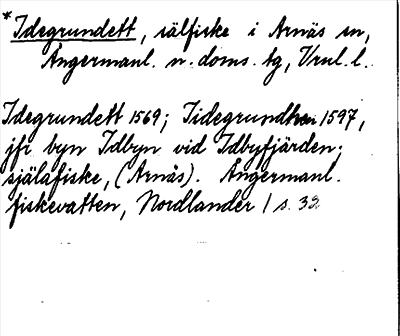 *Idegrundett, sälfiske i Arnäs sn,
Ångermanl. n. doms. tg, Vnul. l.
Idegrundett 1569; Tidegrundhen 1597,
jfr byn Idbyn vid Idbyfjärden;
själafiske, (Arnäs). Ångermanl.
fiskevatten, Nordlander / s. 32